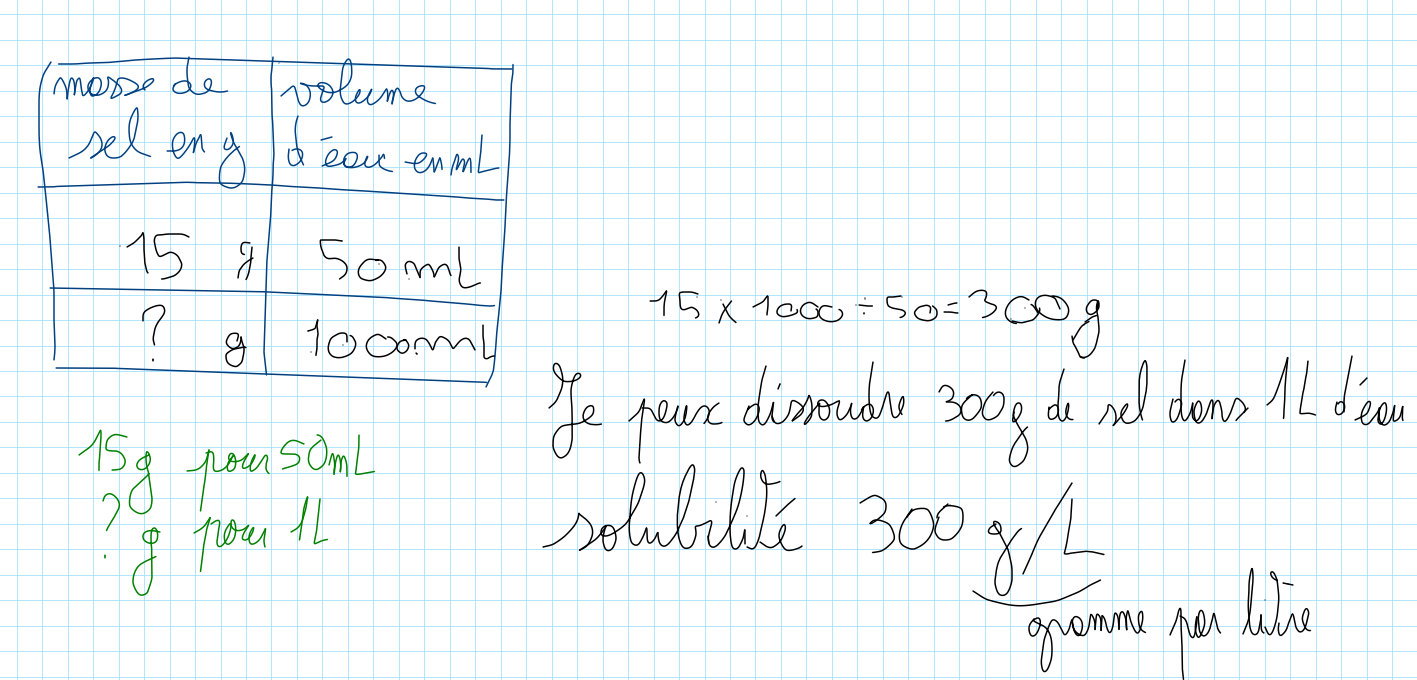 masse de
sel en g
volume
d'eau en mL
15 g
50 mL
? g
1000 mL
15g pour 50mL
? g pour 1L
15 x 1000 ÷ 50 = 300g
Je peux dissoudre 300g de sel dans 1L d'eau
solubilité 300 g/L
gramme par litre